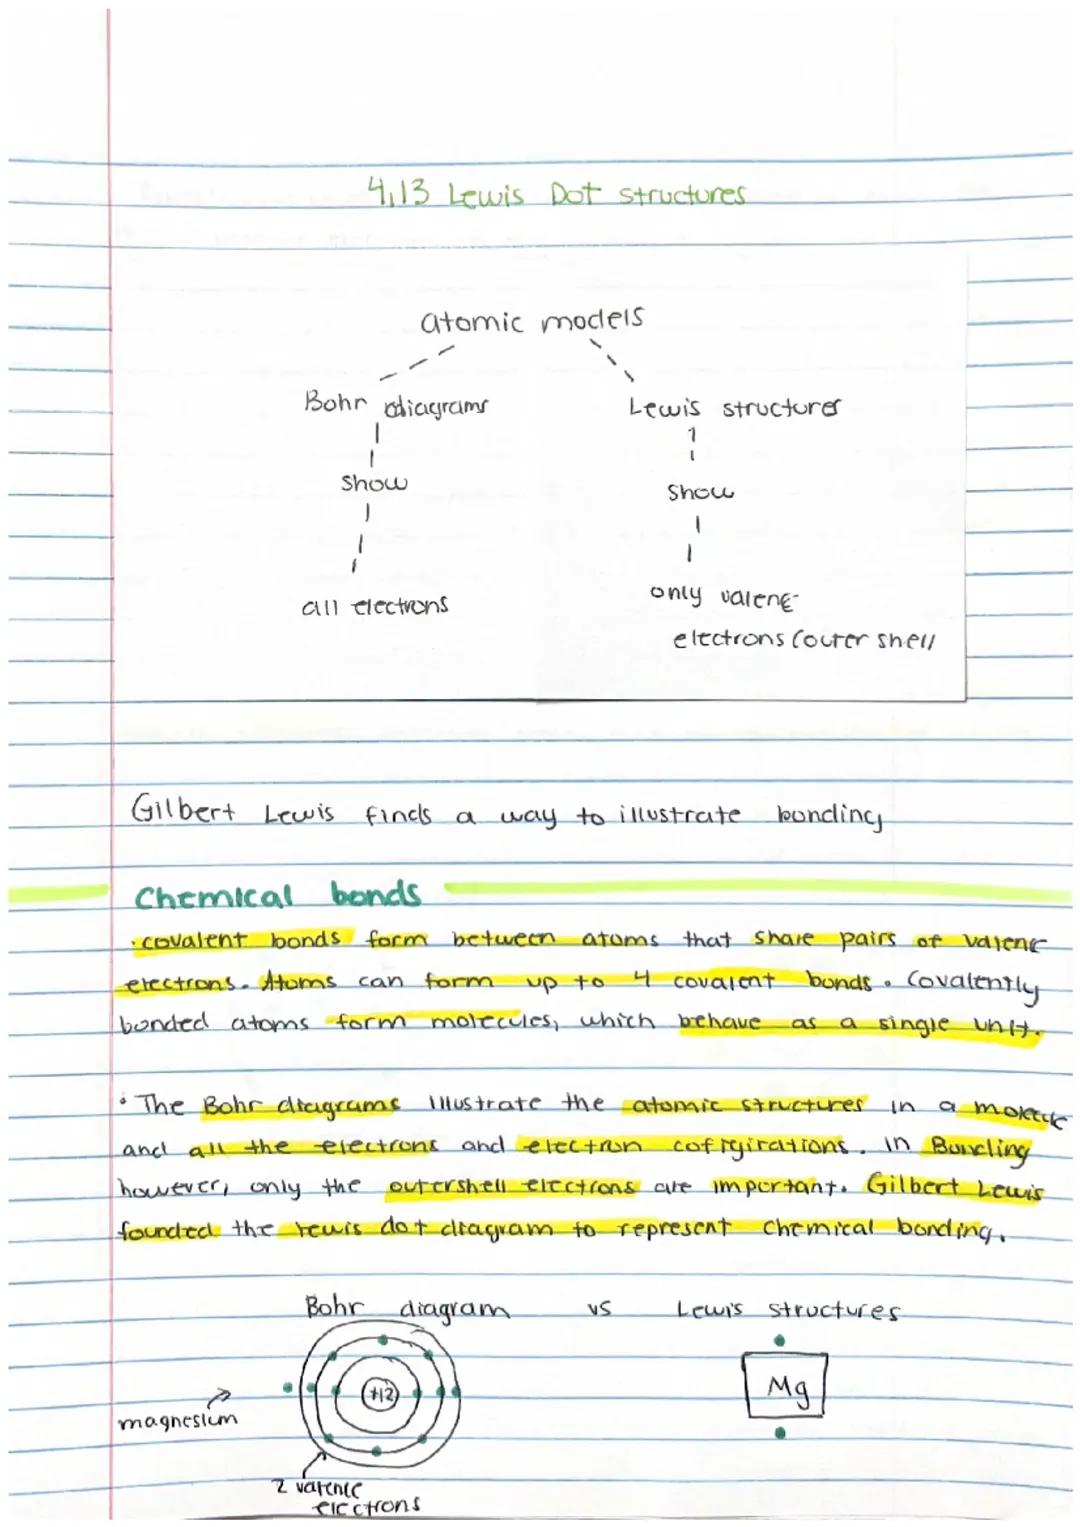 4.13 Lewis Dot structures
atomic models
Bohr diagrams Lewis structures
show show
all electrons only valene-
electrons (outer shell
Gilbert Lewis finds a way to illustrate bonding
Chemical bonds
• covalent bonds form between atoms that share pairs of valence
electrons. Atoms can form up to 4 covalent bonds. Covalently
bonded atoms form molecules, which behave as a single unit.
• The Bohr diagrams illustrate the atomic structures in a molecule
and all the electrons and electron cofigirations. in Bonding
however, only the outershell electrons are important. Gilbert Lewis
founded the lewis dot diagram to represent chemical bonding.
Bohr diagram vs Lewis structures
+12
Mg
magnesium
2 valence
electrons